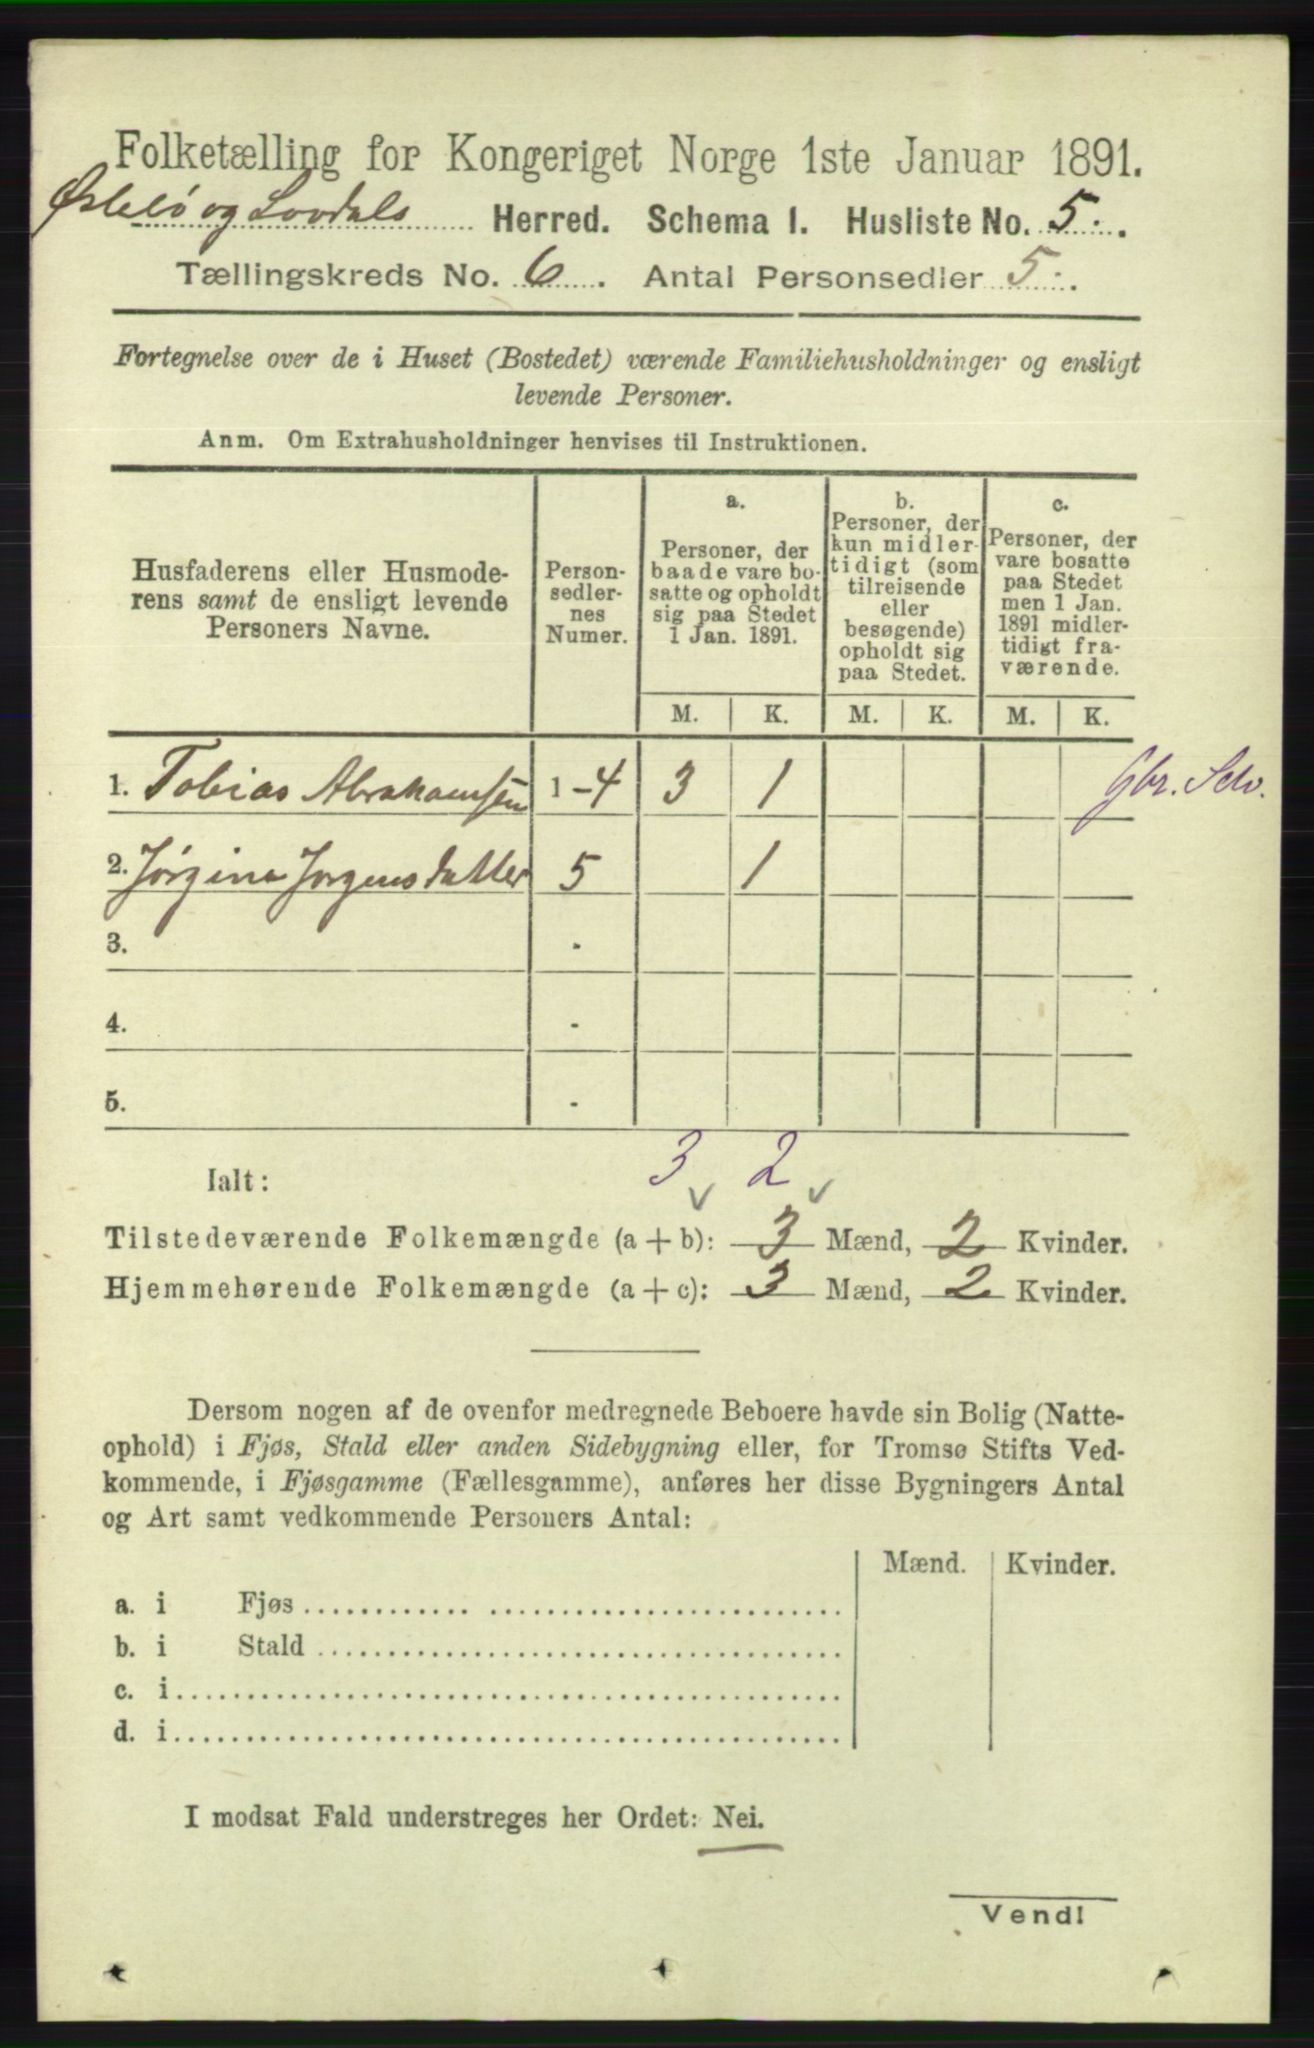 Folketælling for Kongeriget Norge 1ste Januar 1891.
og Lovdals Herred. Schema 1. Husliste No. 5.
Tællingskreds No. 6. Antal Personsedler 5.
Fortegnelse over de i Huset (Bostedet) værende Familiehusholdninger og ensligt
levende Personer.
Anm. Om Extrahusholdninger henvises til Instruktionen.
Husfaderens eller Husmode-
rens samt de ensligt levende
Personers Navne.
Person-
sedler-
nes
Numer.
a.
Personer, der
baade vare bo-
satte og opholdt
sig paa Stedet
1 Jan. 1891.
b.
Personer, der
kun midler-
tidigt (som
tilreisende
eller
besøgende)
opholdt sig
paa Stedet.
c.
Personer, der
vare bosatte
paa Stedet
men 1 Jan.
1891 midler-
tidigt fra-
værende.
M. K. M. K. M. K.
1. Tobias Abrahamsen 1-4 3 1 Gbr. Selv.
2. Jørgine Jørgensdatter 5 1
3. -
4. -
5. -
3 2
Ialt:
Tilstedeværende Folkemængde (a + b): 3 Mænd, 2 Kvinder.
Hjemmehørende Folkemængde (a + c): 3 Mænd, 2 Kvinder.
Dersom nogen af de ovenfor medregnede Beboere havde sin Bolig (Natte-
ophold) i Fjøs, Stald eller anden Sidebygning eller, for Tromsø Stifts Ved-
kommende, i Fjøsgamme (Fællesgamme), anføres her disse Bygningers Antal
og Art samt vedkommende Personers Antal:
Mænd. Kvinder.
a. i Fjøs
b. i Stald
c. i
d. i
I modsat Fald understreges her Ordet: Nei.
Vend!